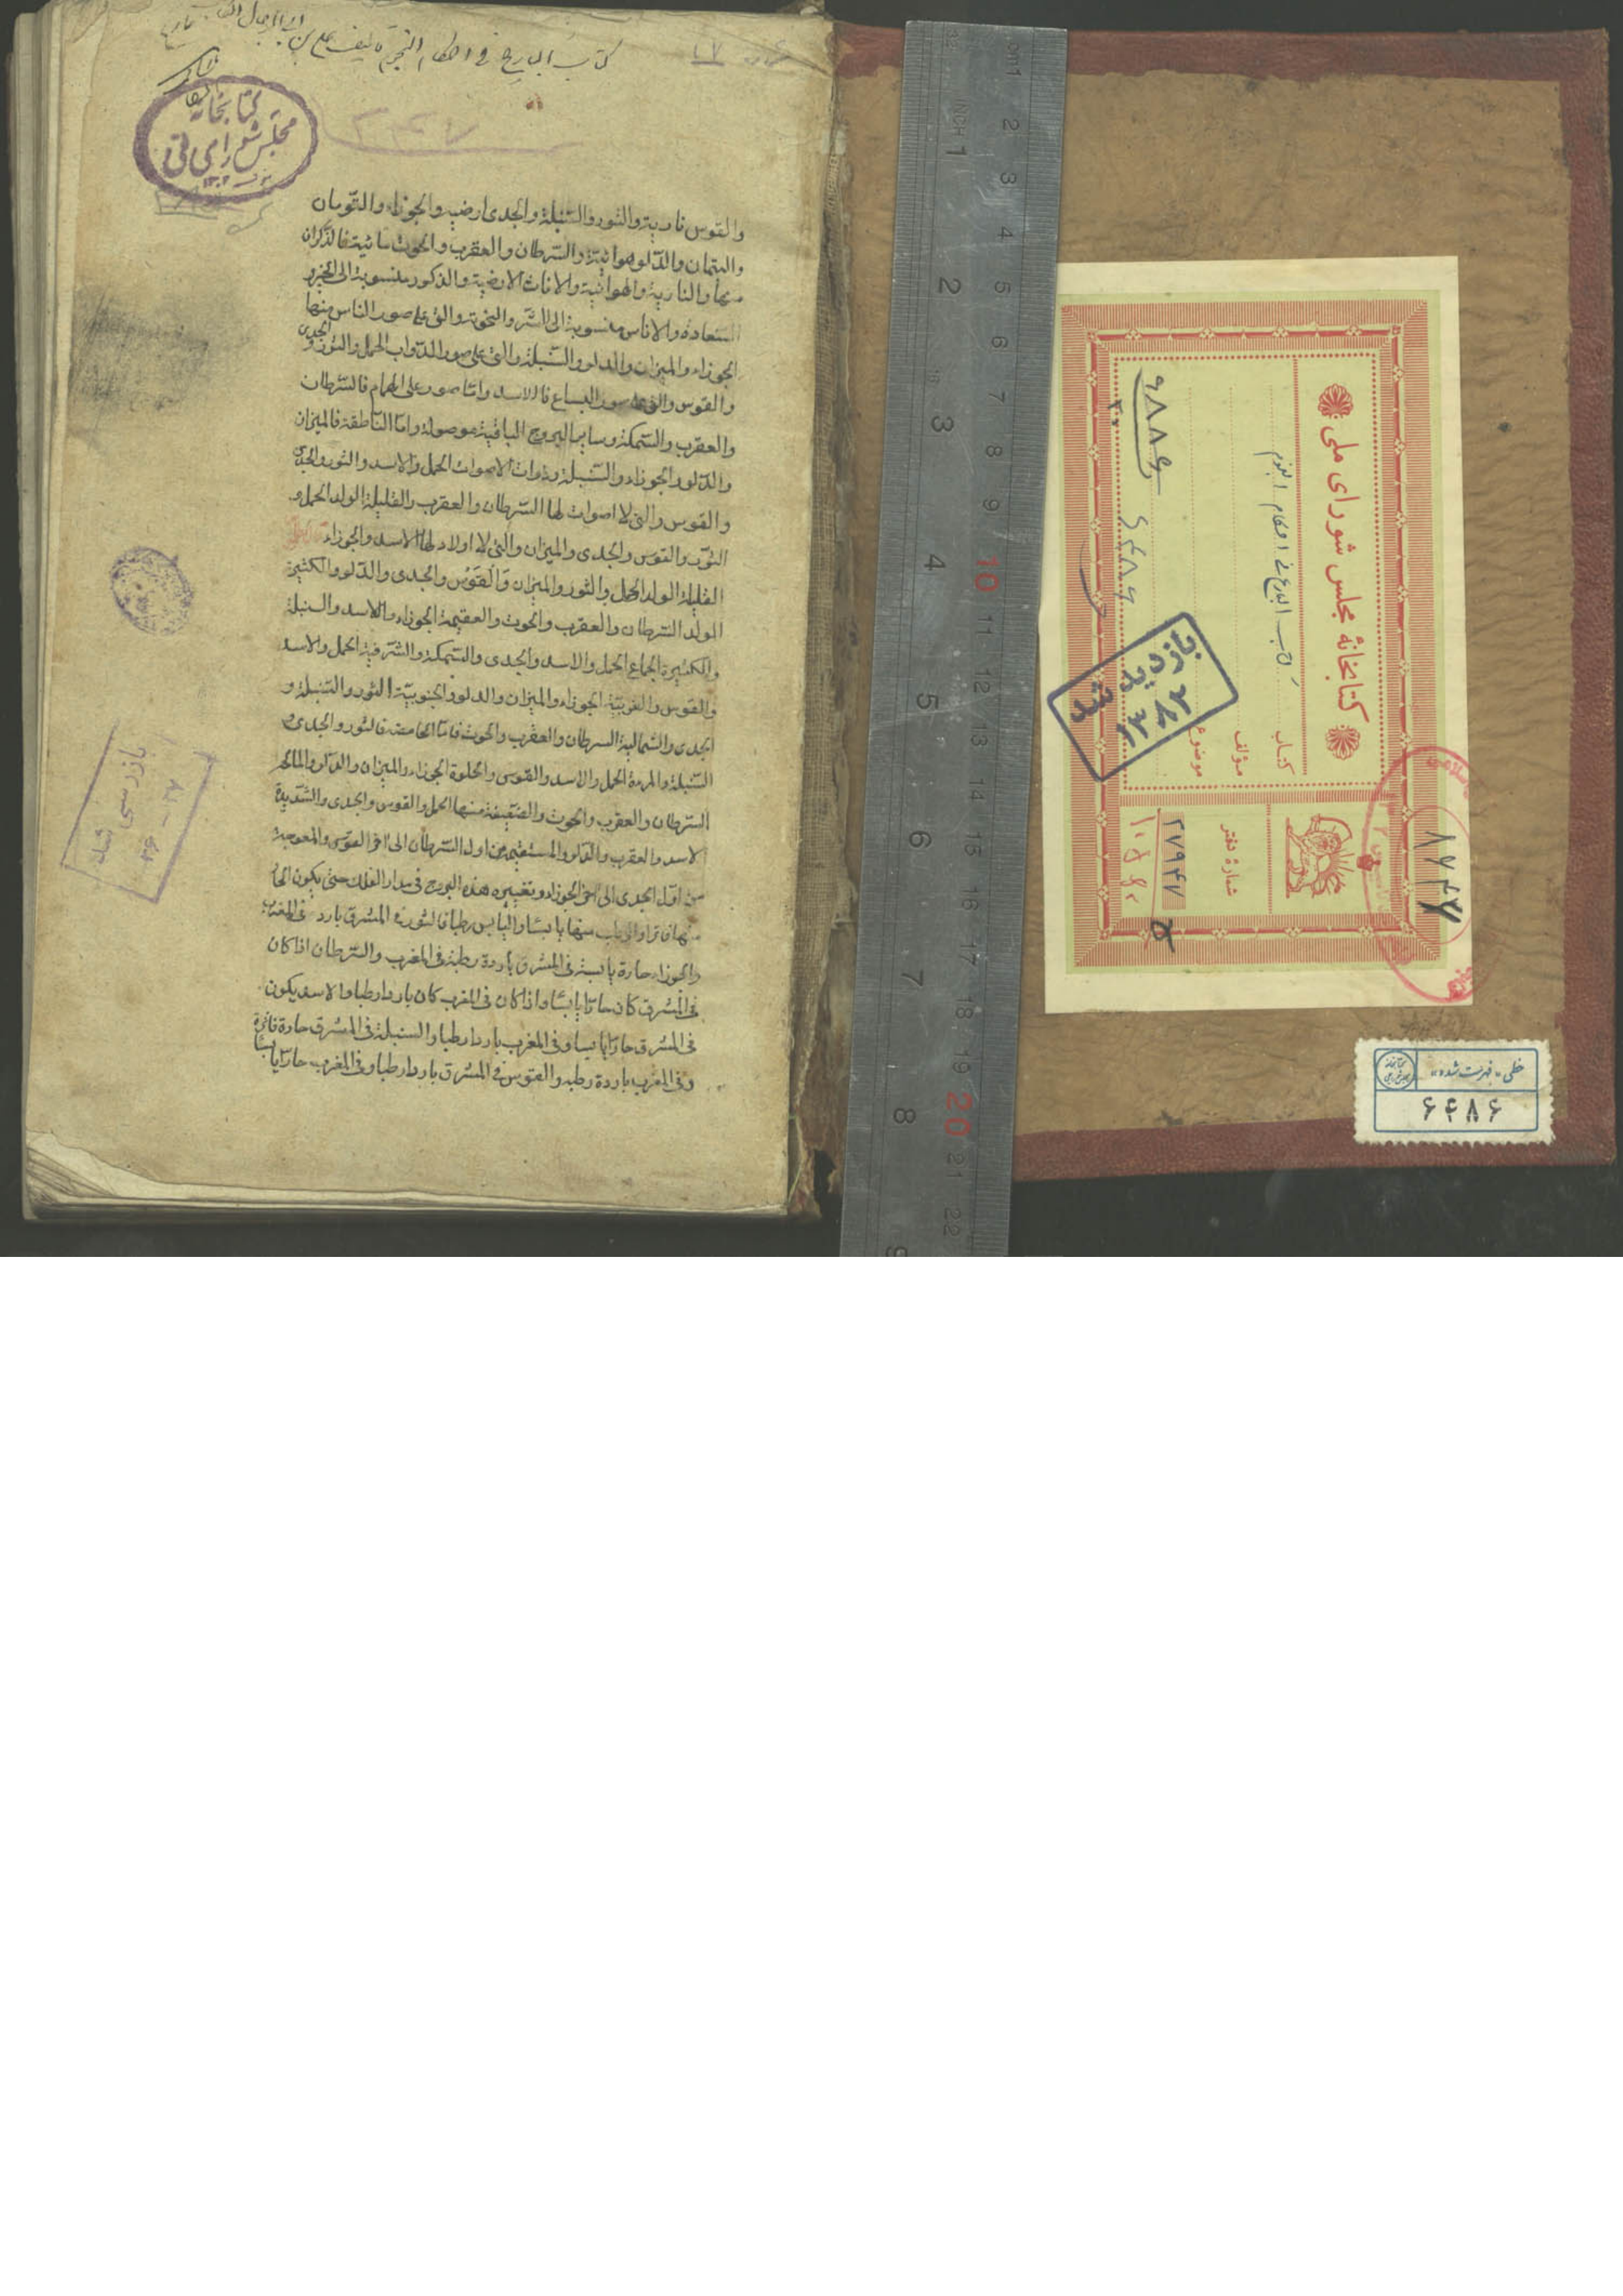 كتاب البارع في احكام النجوم تاليف علي بن ابي الرجال
۱۷
۲۴۷
كتابخانه
مجلس شوراي ملي
۱۳۰۲
والقوس نارية والثور والسنبلة والجدى ارضية والجوزاء والتومان
والميزان والدلو هوائية والسرطان والعقرب والحوت مائية فالذكران
منها النارية والهوائية والاناث الارضية والذكور منسوبة الى الخير و
السعادة والاناس منسوبة الى الشر والنحوة والتى على صور الناس منها
الجوزاء والميزان والدلو والسنبلة والتى على صور الدواب الحمل والثور والجدى
والقوس والتى على صور السباع فالاسد واما صور على الهوام فالسرطان
والعقرب والسمكة وساير البروج الباقية موصولة واما الناطقة فالميزان
والدلو والجوزاء والسنبلة وذوات الاصوات الحمل والاسد والثور والجدى
والقوس والتى لا اصوات لها السرطان والعقرب والقليلة الولد الحمل و
الثور والقوس والجدى والميزان والتى لا اولاد لها الاسد والجوزاء
القليلة الولد الحمل والثور والميزان والقوس والجدى والدلو والكثيرة
الولد السرطان والعقرب والحوت والعقيمة الجوزاء والاسد والسنبلة
والكثيرة الجماع الحمل والاسد والجدى والسمكة والشرقية الحمل والاسد
والقوس والغربية الجوزاء والميزان والدلو والجنوبية الثور والسنبلة و
الجدى والشمالية السرطان والعقرب والحوت فاما الحامضة فالثور والجدى و
السنبلة والمرة الحمل والاسد والقوس والحلوة الجوزاء والميزان والدلو والمالحة
السرطان والعقرب والحوت والضعيفة منها الحمل والقوس والجدى والشديدة
الاسد والعقرب والدلو والمستقيمة من اول السرطان الى اخر القوس والمعوجة
من اول الجدى الى اخر الجوزاء وتغييره هذه البروج فى مدار الفلك حتى يكون الحار
منها فاترا والرطب منها يابسا واليابس رطبا فالثور فى المشرق بارد فى المغرب
والجوزاء حارة يابسة فى المشرق باردة رطبة فى المغرب والسرطان اذا كان
فى المشرق كان حارا يابسا واذا كان فى المغرب كان باردا رطبا والاسد يكون
فى المشرق حارا يابسا وفى المغرب باردا رطبا والسنبلة فى المشرق حارة فاترة
وفى المغرب باردة رطبة والقوس فى المشرق باردا رطبا وفى المغرب حارا يابسا
بازرسی شد
۳۶ - ۳۷
کتابخانهٔ مجلس شورای ملی
کتاب البارع فی احکام النجوم
کتاب
مؤلف
موضوع
شمارهٔ دفتر
۲۷۹۴۷
۹۸۸۶
۶۴۸۶
بازدید شد
۱۳۸۲
۸۷۴۷
خطی - فهرست شده
۶۴۸۶
cm1 2 3 4 5 6 7 8 9 10 11 12 13 14 15 16 17 18 19 20 21 22
INCH 1 2 3 4 5 6 7 8 9